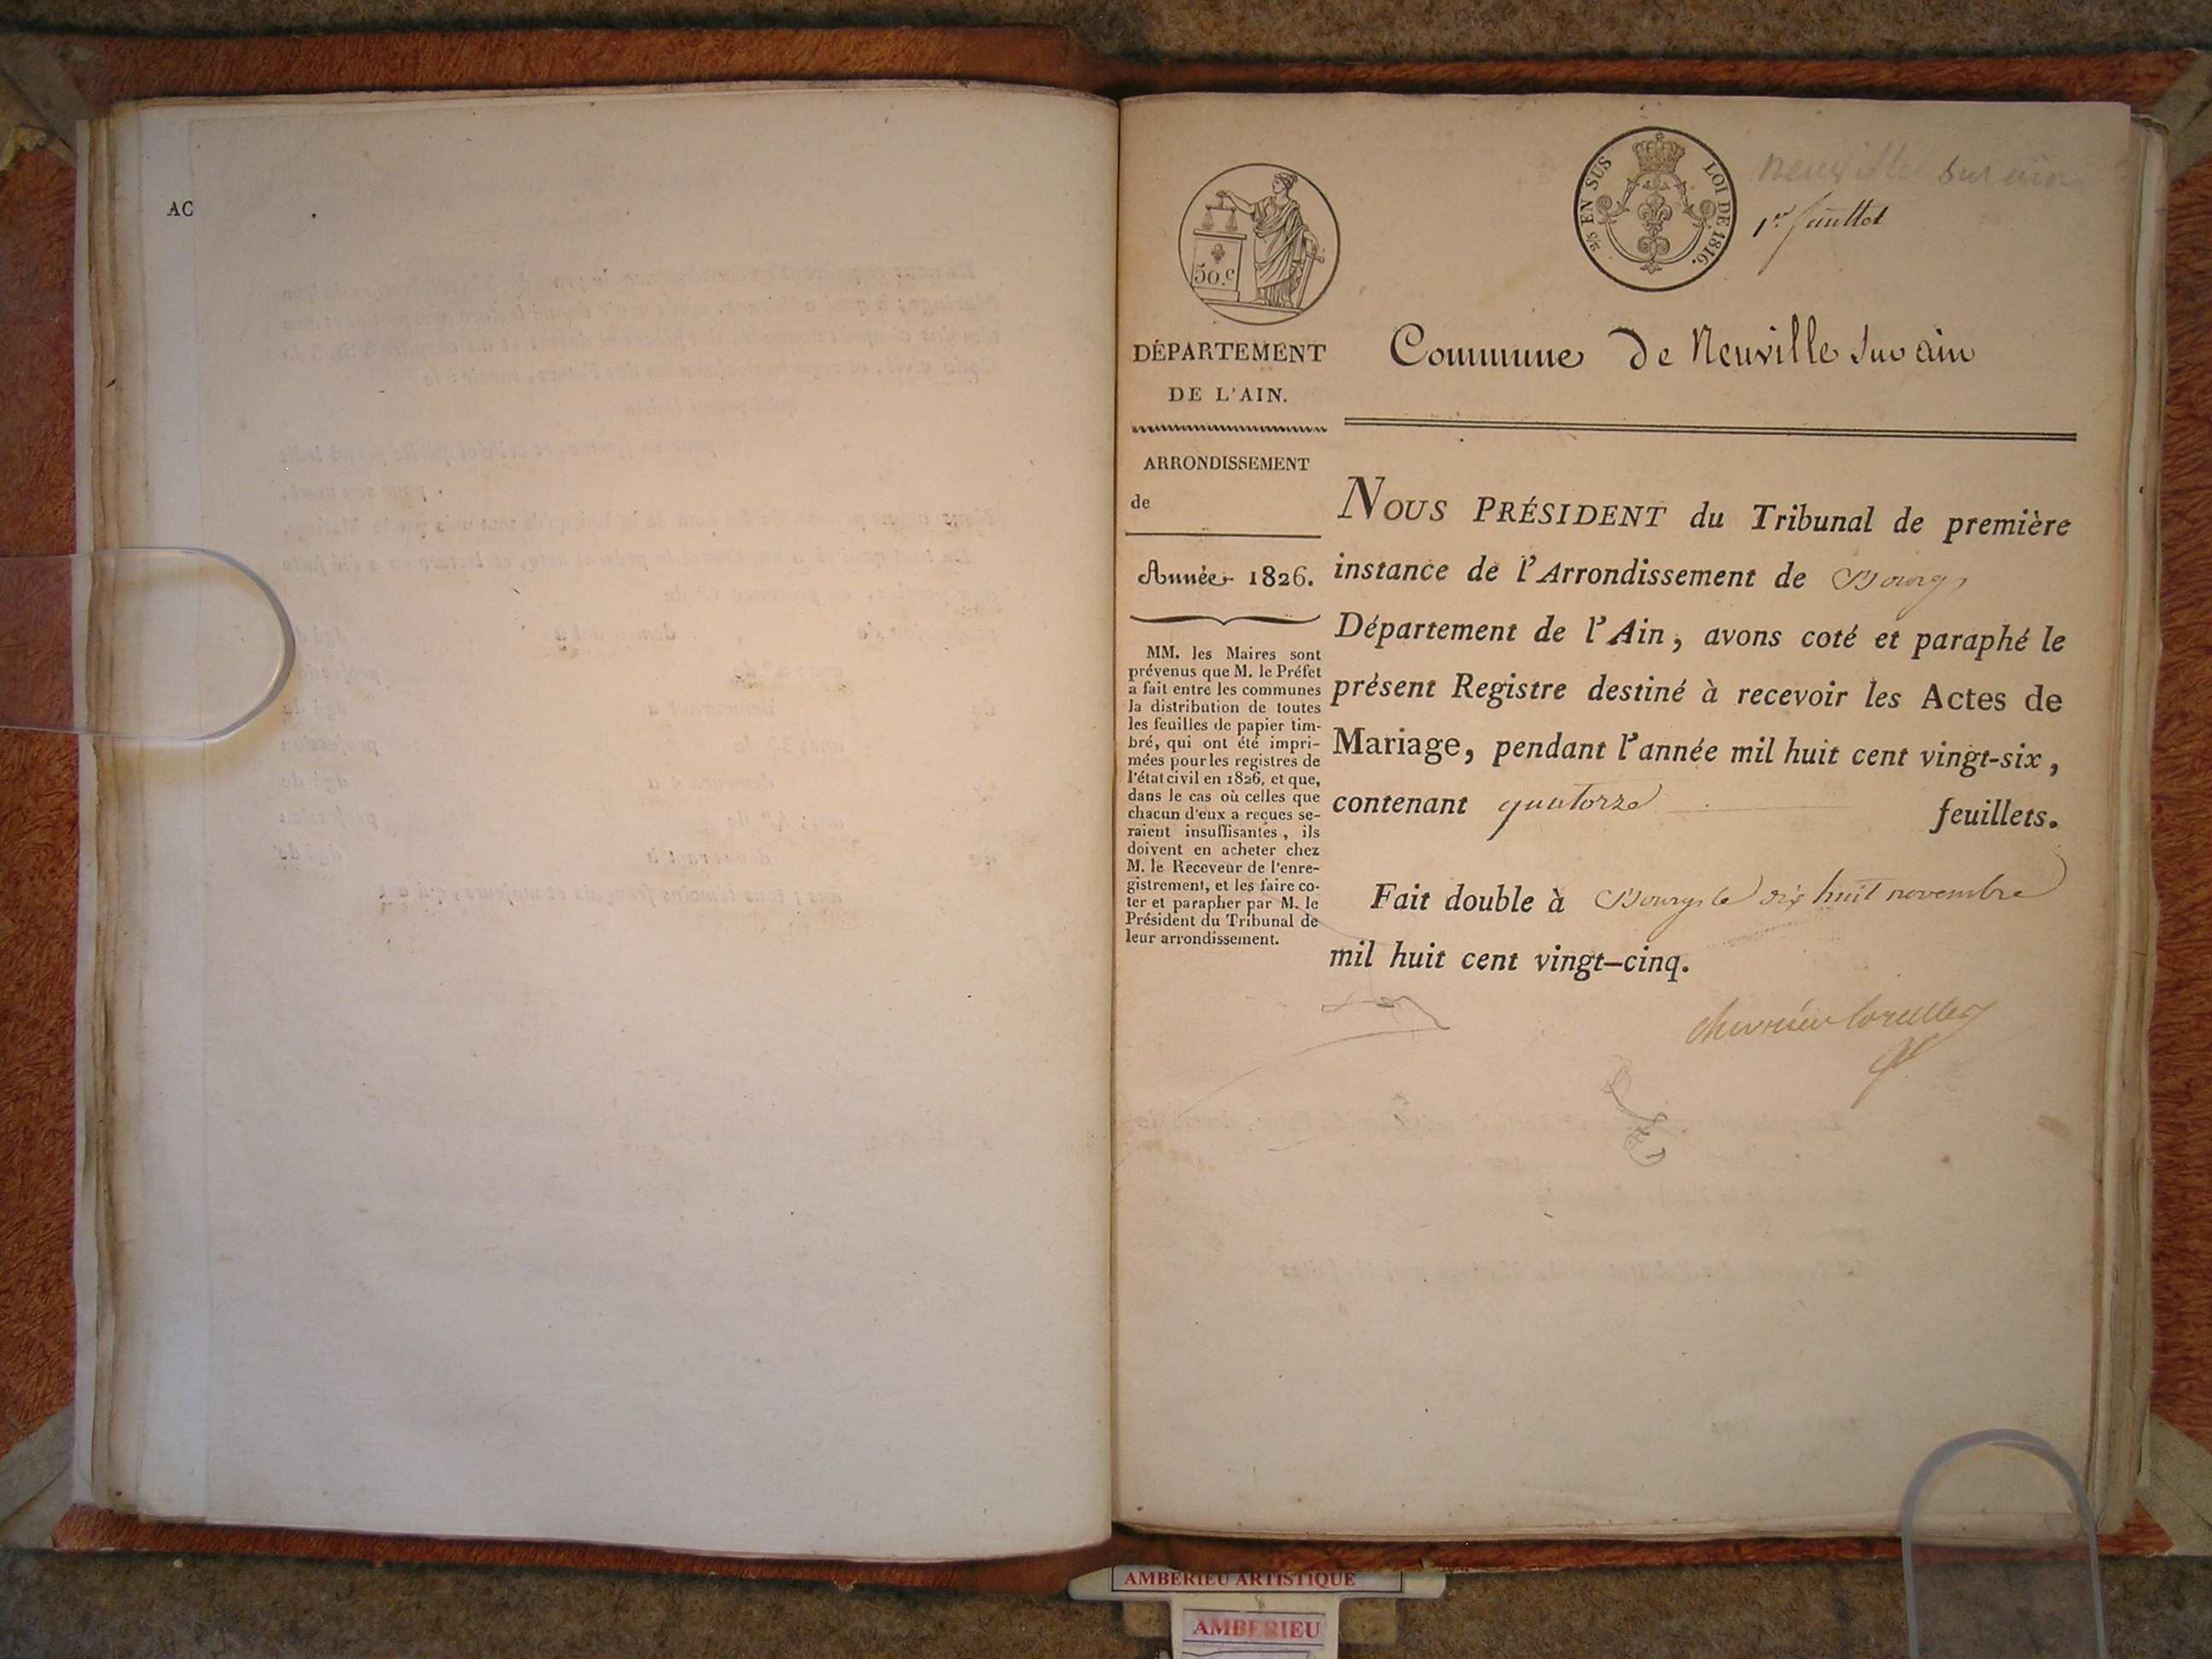 AC
50.c
25 EN SUS LOI DE 1816.
Neuville sur ain
1er feuillet
DÉPARTEMENT
DE L'AIN.
Commune de Neuville sur ain
ARRONDISSEMENT
de
Année 1826.
MM. les Maires sont
prévenus que M. le Préfet
a fait entre les communes
la distribution de toutes
les feuilles de papier tim-
bré, qui ont été impri-
mées pour les registres de
l'état civil en 1826, et que,
dans le cas où celles que
chacun d'eux a reçues se-
raient insuffisantes, ils
doivent en acheter chez
M. le Receveur de l'enre-
gistrement, et les faire co-
ter et parapher par M. le
Président du Tribunal de
leur arrondissement.
NOUS PRÉSIDENT du Tribunal de première
instance de l'Arrondissement de Bourg,
Département de l'Ain, avons coté et paraphé le
présent Registre destiné à recevoir les Actes de
Mariage, pendant l'année mil huit cent vingt-six,
contenant quatorze feuillets.
Fait double à Bourg le dix huit novembre
mil huit cent vingt-cinq.
AMBERIEU ARTISTIQUE
AMBERIEU